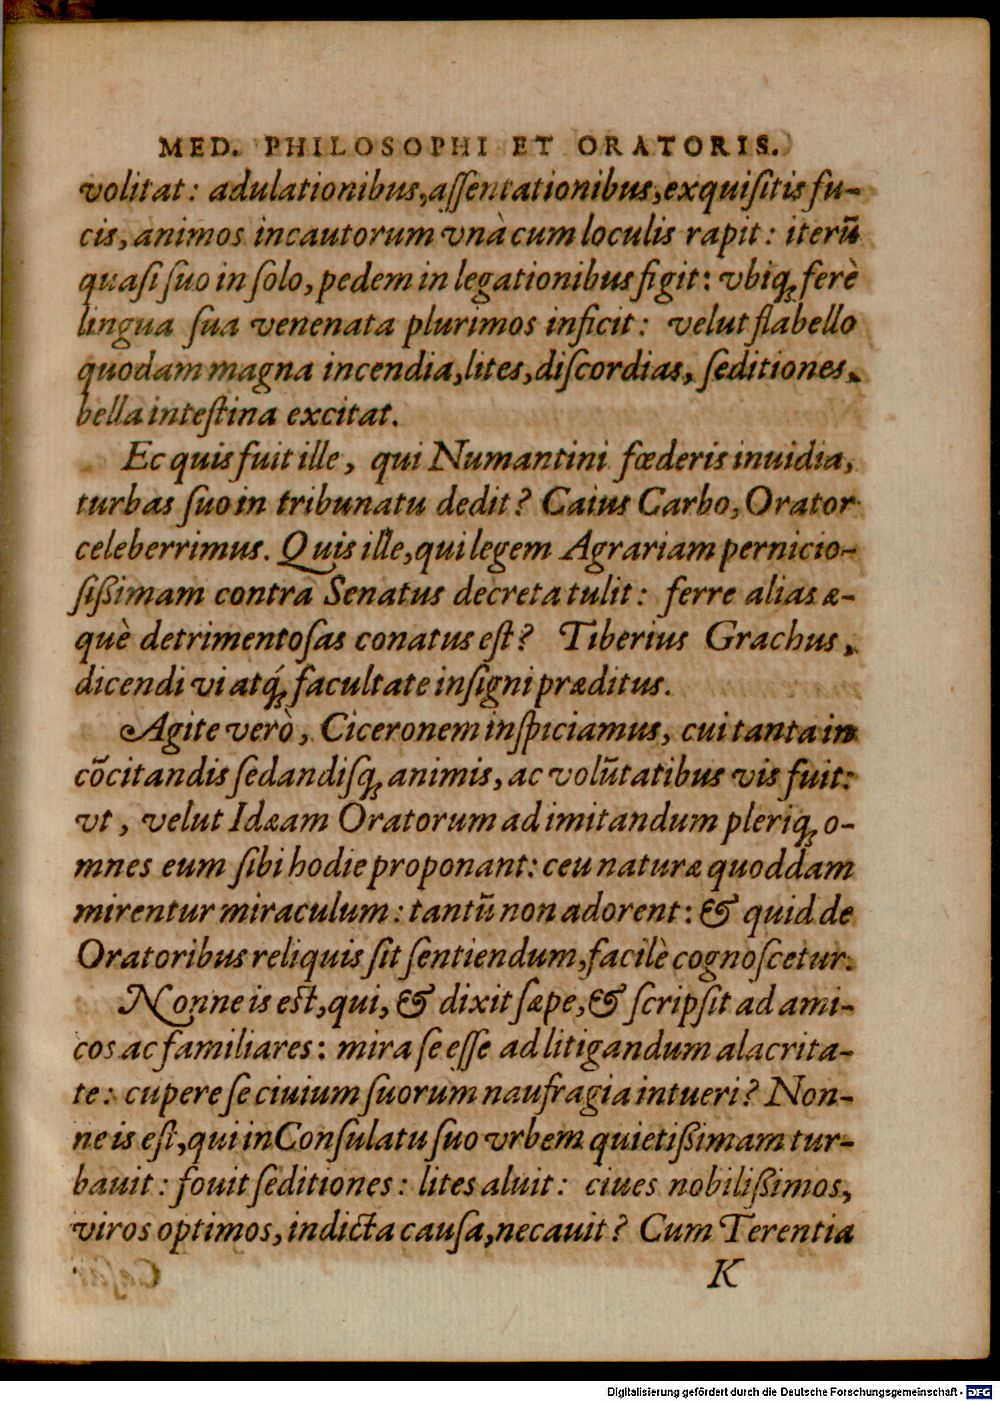 MED. PHILOSOPHI ET ORATORIS.
volitat: adulationibus, aſſentationibus, exquiſitis fu-
cis, animos incautorum vnà cum loculis rapit: iterũ
quaſi ſuo in ſolo, pedem in legationibus figit: vbiq́; ferè
lingua ſua venenata plurimos inficit: velut flabello
quodam magna incendia, lites, diſcordias, ſeditiones,
bella inteſtina excitat.
Ec quis fuit ille, qui Numantini fœderis inuidia,
turbas ſuo in tribunatu dedit? Caius Carbo, Orator
celeberrimus. Quis ille, qui legem Agrariam pernicio-
ſißimam contra Senatus decreta tulit: ferre alias æ-
què detrimentoſas conatus eſt? Tiberius Grachus,
dicendi vi atq́; facultate inſigni præditus.
Agite verò, Ciceronem inſpiciamus, cui tanta in
cõcitandis ſedandiſq́; animis, ac volũtatibus vis fuit:
vt, velut Idæam Oratorum ad imitandum pleriq́; o-
mnes eum ſibi hodie proponant: ceu naturæ quoddam
mirentur miraculum: tantũ non adorent: & quid de
Oratoribus reliquis ſit ſentiendum, facilè cognoſcetur.
Nonne is eſt, qui, & dixit ſæpe, & ſcripſit ad ami-
cos ac familiares: mira ſe eſſe ad litigandum alacrita-
te: cupere ſe ciuium ſuorum naufragia intueri? Non-
ne is eſt, qui in Conſulatu ſuo vrbem quietißimam tur-
bauit: fouit ſeditiones: lites aluit: ciues nobilißimos,
viros optimos, indicta cauſa, necauit? Cum Terentia
K
Digitalisierung gefördert durch die Deutsche Forschungsgemeinschaft - DFG